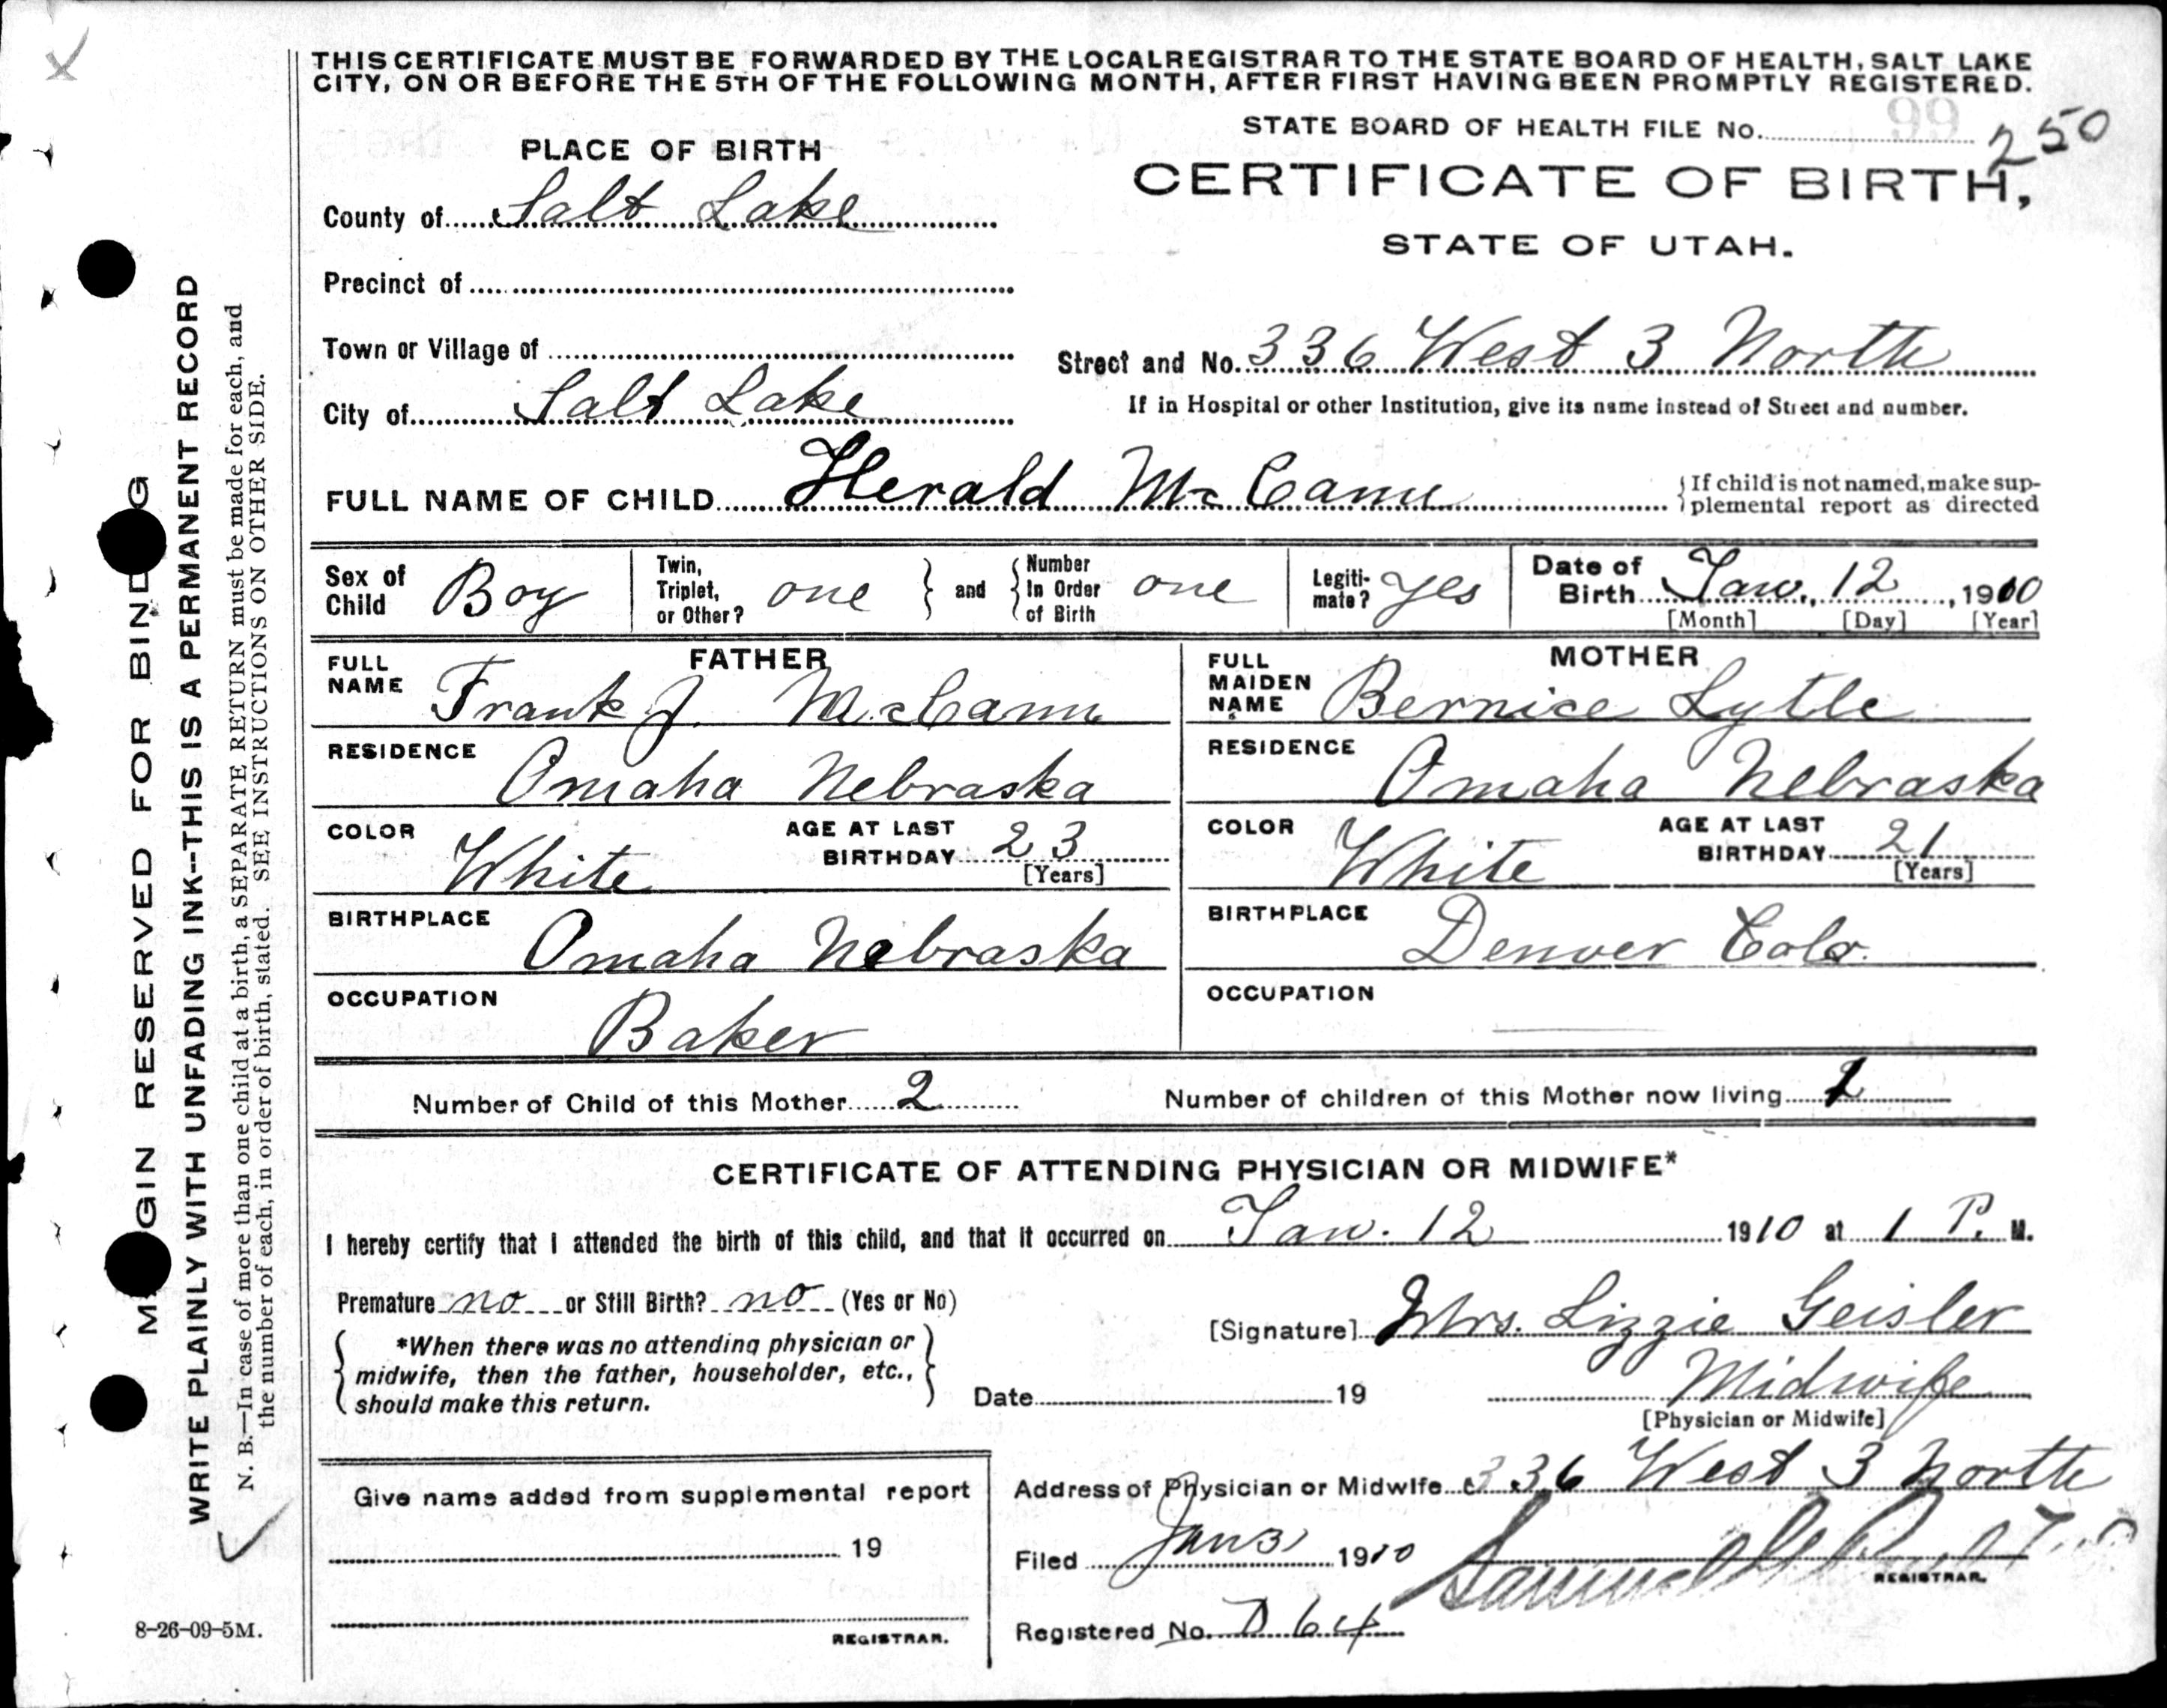 THIS CERTIFICATE MUST BE FORWARDED BY THE LOCAL REGISTRAR TO THE STATE BOARD OF HEALTH, SALT LAKE
CITY, ON OR BEFORE THE 5TH OF THE FOLLOWING MONTH, AFTER FIRST HAVING BEEN PROMPTLY REGISTERED.
STATE BOARD OF HEALTH FILE No. 250
PLACE OF BIRTH
CERTIFICATE OF BIRTH,
STATE OF UTAH.
County of Salt Lake
Precinct of
Town or Village of
Street and No. 336 West 3 North
City of Salt Lake
If in Hospital or other Institution, give its name instead of Street and number.
FULL NAME OF CHILD Herald McCann
{If child is not named, make sup-
plemental report as directed
Sex of Child Boy
Twin, Triplet, or Other? one } and { Number In Order of Birth one
Legiti-mate? yes
Date of Birth Jan. 12, 1910
[Month] [Day] [Year]
FATHER
FULL NAME Frank J. McCann
RESIDENCE Omaha Nebraska
COLOR White
AGE AT LAST BIRTHDAY 23
[Years]
BIRTHPLACE Omaha Nebraska
OCCUPATION Baker
MOTHER
FULL MAIDEN NAME Bernice Lytle
RESIDENCE Omaha Nebraska
COLOR White
AGE AT LAST BIRTHDAY 21
[Years]
BIRTHPLACE Denver Colo.
OCCUPATION
Number of Child of this Mother 2 Number of children of this Mother now living
CERTIFICATE OF ATTENDING PHYSICIAN OR MIDWIFE*
I hereby certify that I attended the birth of this child, and that it occurred on Jan. 12 1910 at 1 P. M.
Premature no or Still Birth? no (Yes or No)
[Signature] Mrs. Lizzie Geisler
*When there was no attending physician or
midwife, then the father, householder, etc.,
should make this return.
Date 19
Midwife
[Physician or Midwife]
Give name added from supplemental report
19
REGISTRAR.
Address of Physician or Midwife 336 West 3 North
Filed Jan 1910
Samuel
REGISTRAR.
Registered No. 64
8-26-09-5M.
MARGIN RESERVED FOR BINDING
WRITE PLAINLY WITH UNFADING INK--THIS IS A PERMANENT RECORD
N. B.—In case of more than one child at a birth, a SEPARATE RETURN must be made for each, and
the number of each, in order of birth, stated. SEE INSTRUCTIONS ON OTHER SIDE.